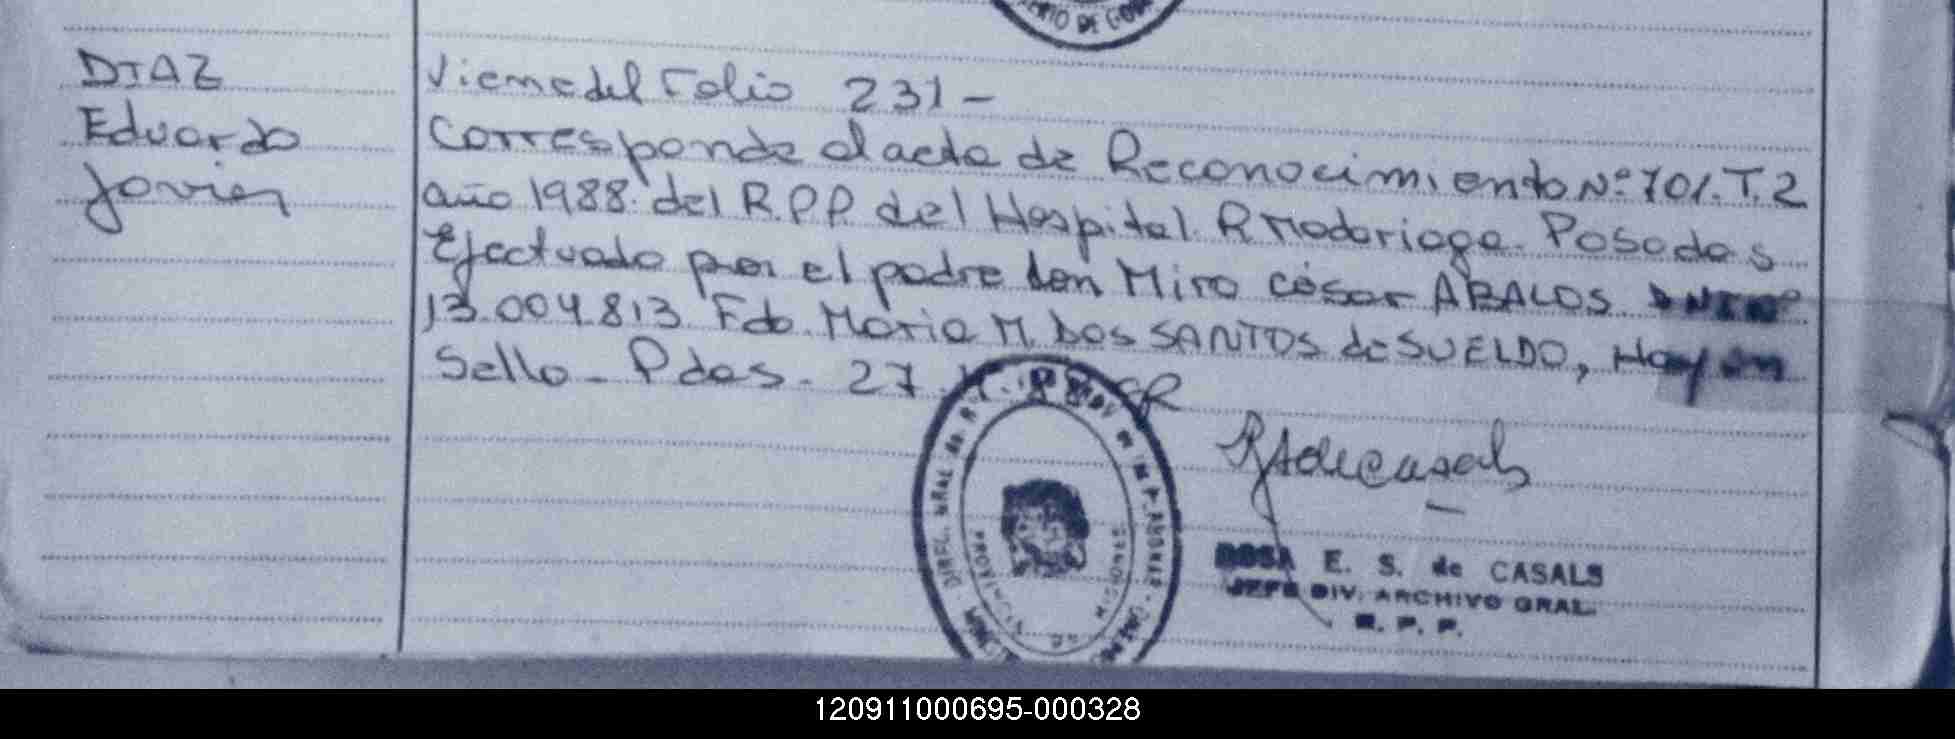 RIO DE GOB
DIAZ
Eduardo
Javier
Viene del Folio 231 -
Corresponde al acta de Reconocimiento Nº 701. T. 2
año 1988. del R.P.P. del Hospital. R Madariaga. Posadas
Efectuado por el padre don Miro césar ABALOS DNI Nº
13.004.813 Fdo. Maria M. Dos SANTOS de SUELDO, Hay un
Sello - Pdas. 27
ROSA E. S. de CASALS
JEFE DIV. ARCHIVO GRAL.
R. P. P.
120911000695-000328